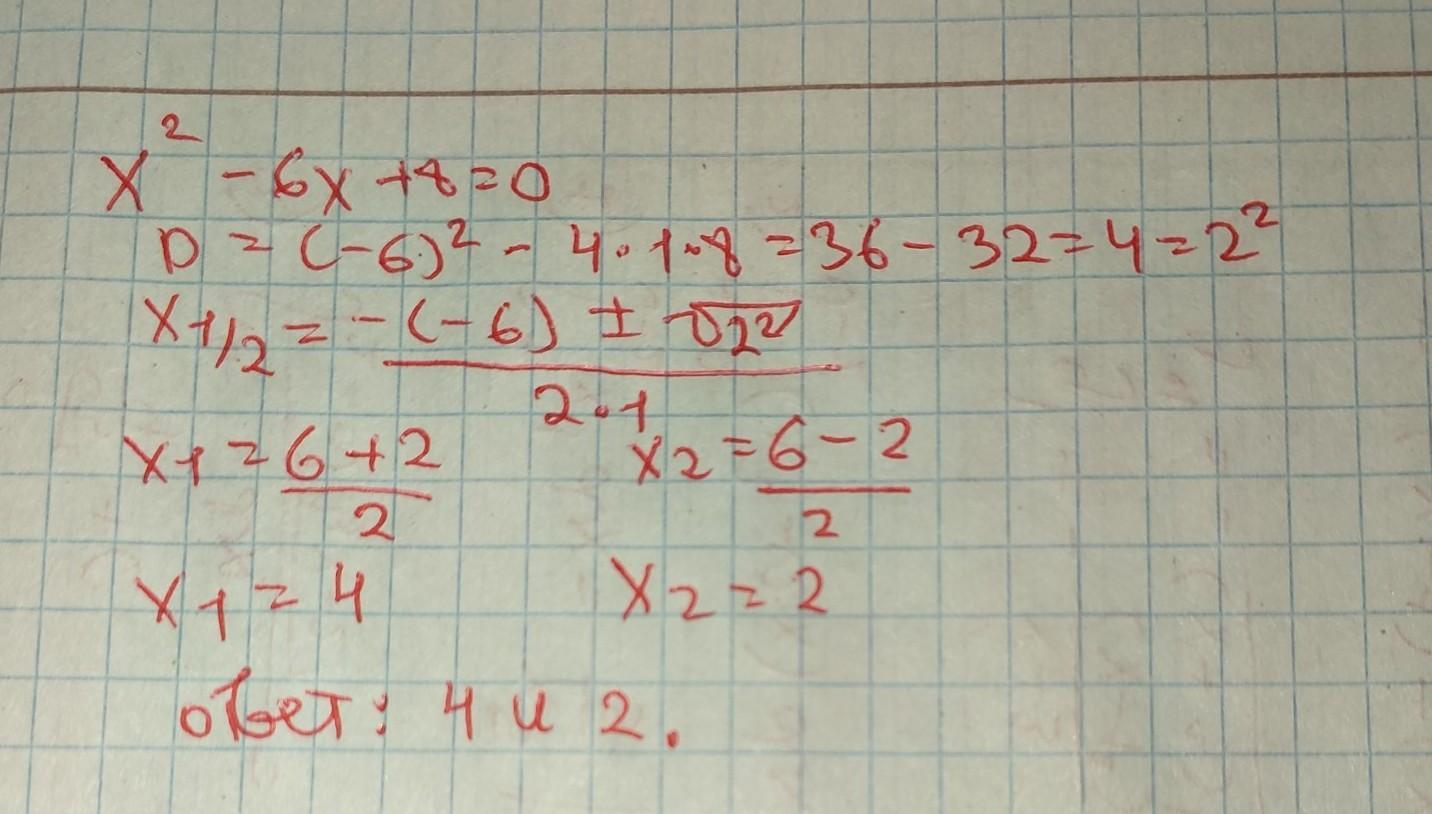 x² - 6x + 8 = 0
D = (-6)² - 4·1·8 = 36 - 32 = 4 = 2²
x1/2 = -(-6) ± √2² / 2·1
x1 = 6+2 / 2 x2 = 6-2 / 2
x1 = 4 x2 = 2
ответ: 4 и 2.